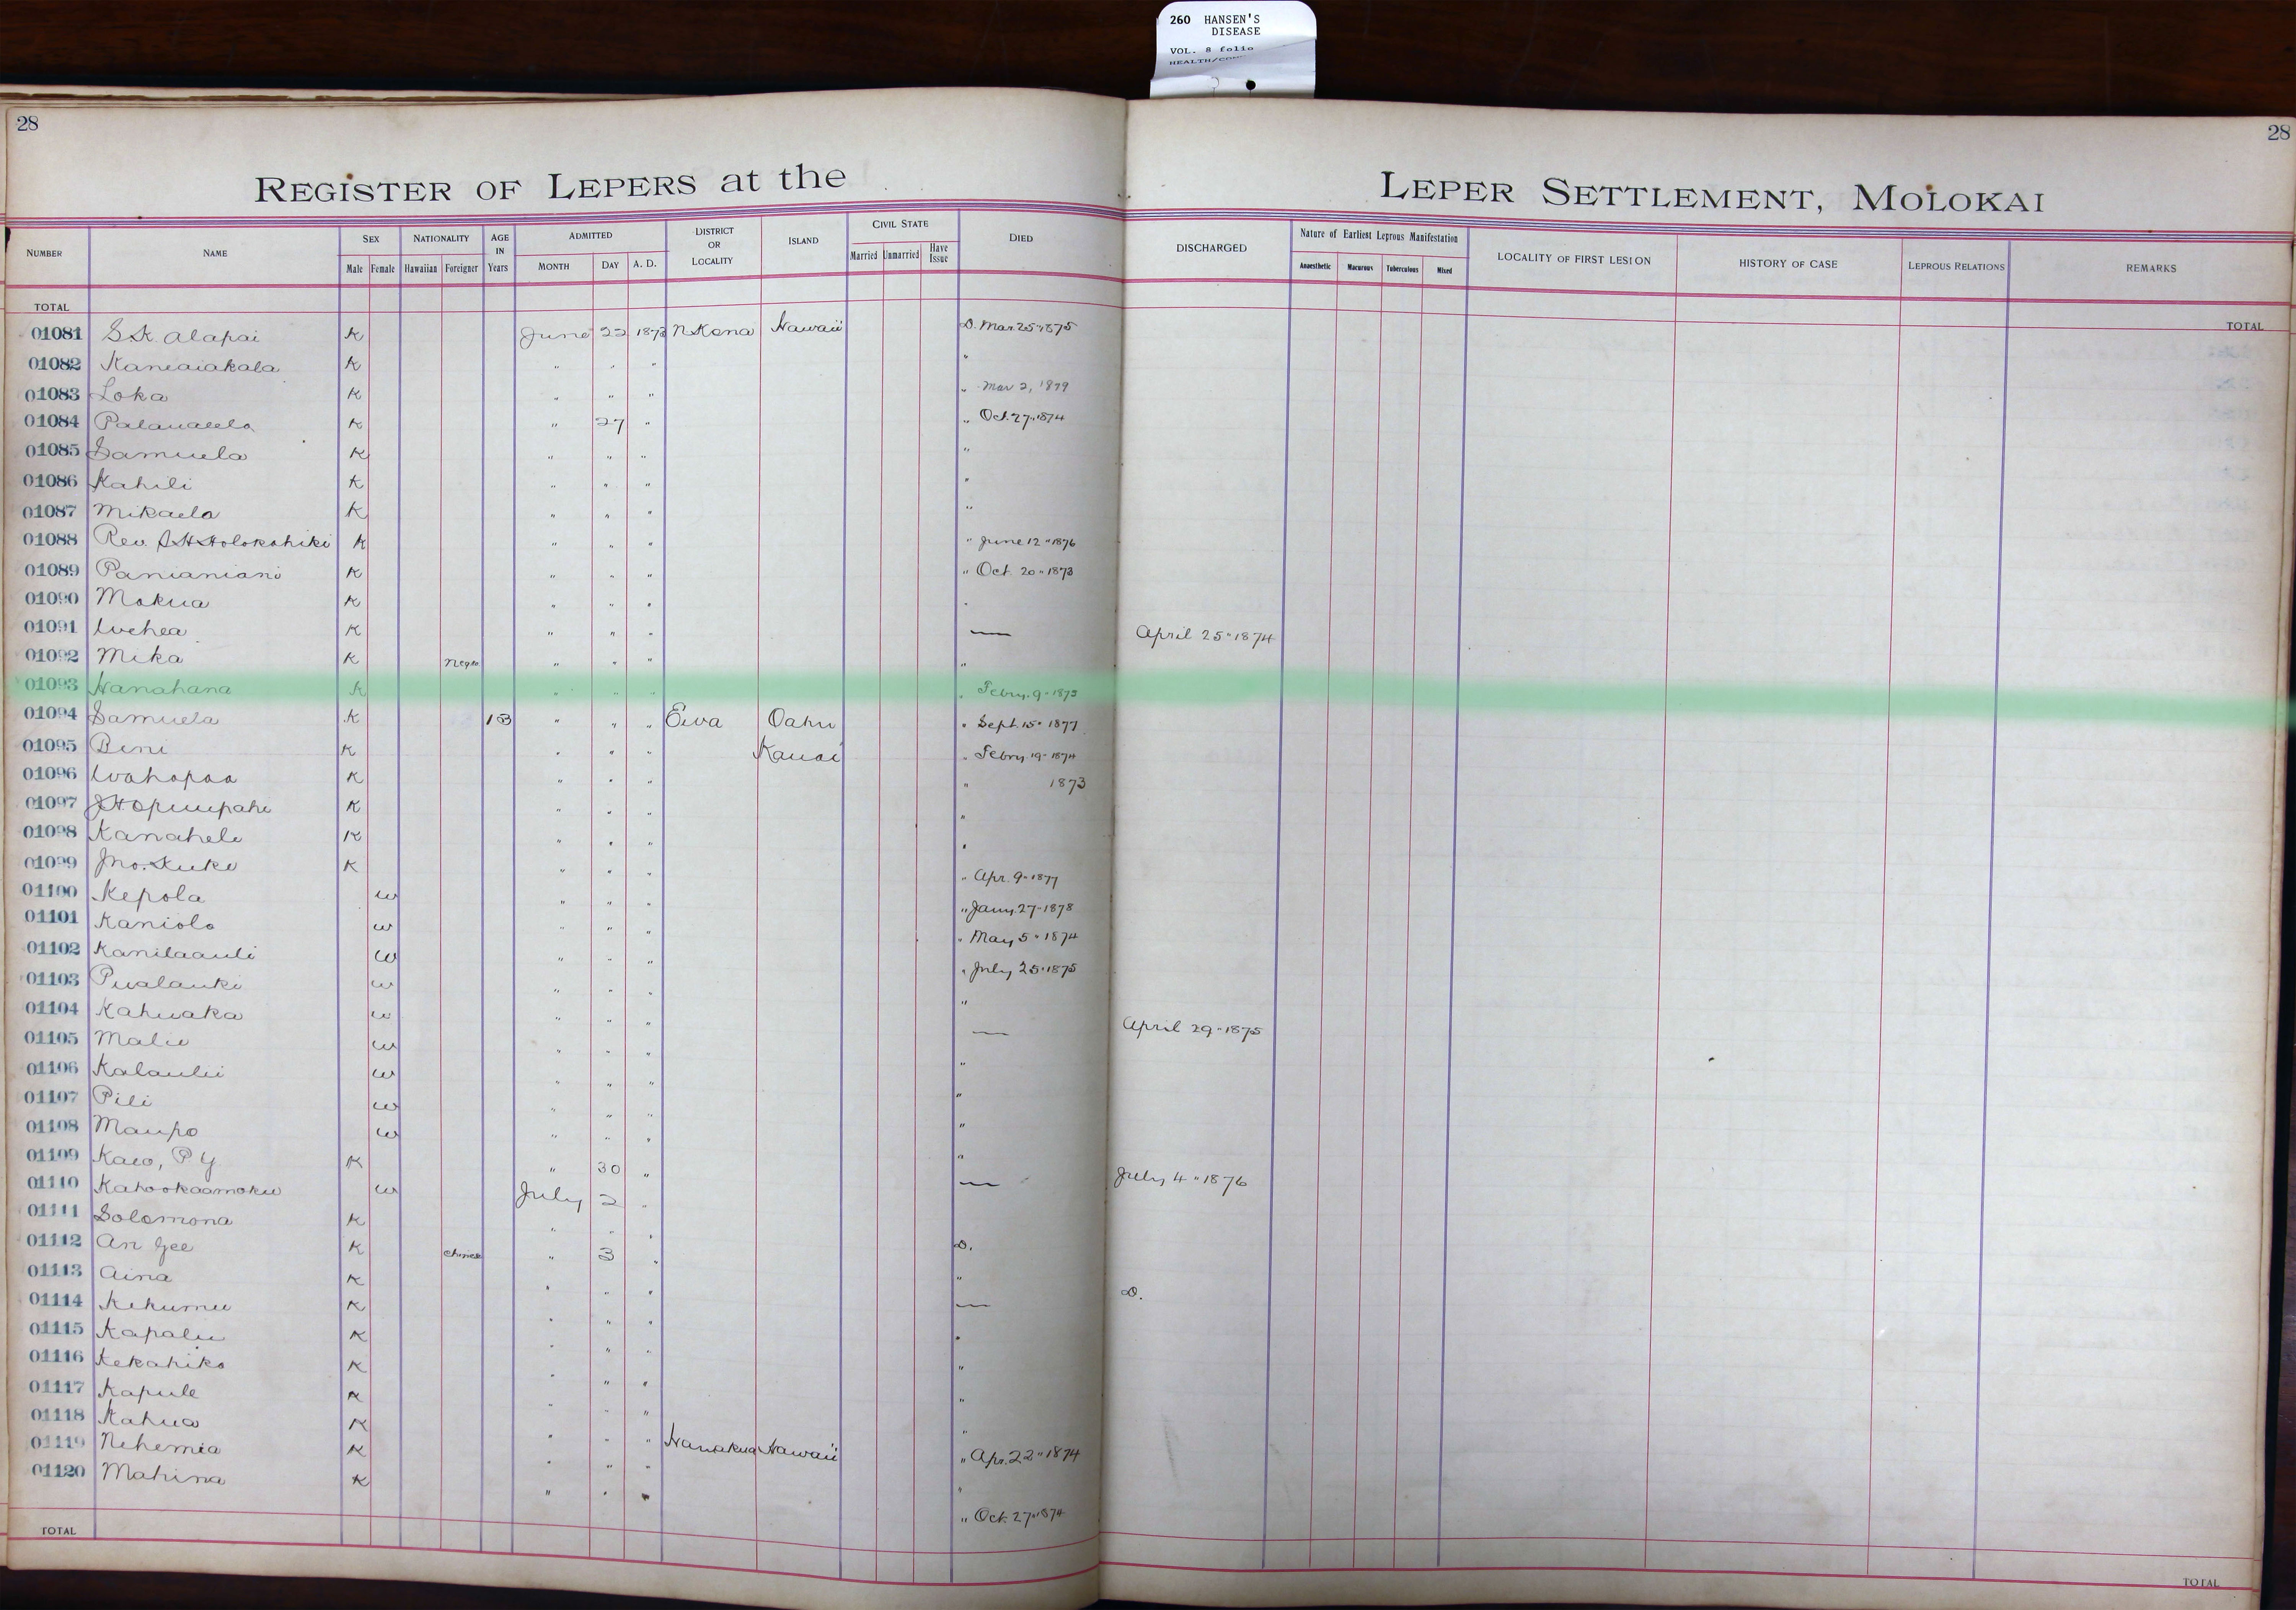 260 HANSEN'S
DISEASE
VOL. 8 folio
28
28
REGISTER OF LEPERS at the LEPER SETTLEMENT, MOLOKAI
NUMBER NAME SEX NATIONALITY AGE IN Years ADMITTED DISTRICT OR LOCALITY ISLAND CIVIL STATE DIED DISCHARGED Nature of Earliest Leprous Manifestation LOCALITY OF FIRST LESION HISTORY OF CASE LEPROUS RELATIONS REMARKS
Male Female Hawaiian Foreigner MONTH DAY A. D. Married Unmarried Have Issue Anaesthetic Macurous Tuberculous Mixed
TOTAL TOTAL
01081 S.K. Alapai K June 22 1873 N Kona Hawaii D. Mar. 25 " 1875
01082 Kaneaiakala K " " " "
01083 Loka K " " " " Mar 2, 1879
01084 K " 27 " " Oct. 27 " 1874
01085 Samuela K " " " "
01086 Kahili K " " " "
01087 Mikaela K " " " "
01088 Rev. S H Holokahiki K " " " " June 12 " 1876
01089 Panianiani K " " " " Oct. 20 " 1873
01090 Mokua K " " " "
01091 Wehea K " " " — April 25 " 1874
01092 Mika K Negro " " " "
01093 Hanahana K " " " " Febry. 9 - 1875
01094 Samuela K 13 " " " Ewa Oahu " Sept. 15 " 1877
01095 Beni K " " " Kauai " Febry 19 - 1874
01096 Wahapaa K " " " " 1873
01097 J.H. Opuupahi K " " " "
01098 Kanahele K " " " "
01099 Jno. Kuke K " " " " Apr. 9 - 1877
01100 Kepola W " " " " Jany. 27 - 1878
01101 Kaniolo W " " " " May 5 " 1874
01102 Kanilaauli W " " " " July 25 " 1875
01103 Pualauki W " " " "
01104 Kahuaka W " " " — April 29 " 1875
01105 Malie W " " " "
01106 Kalaulii W " " " "
01107 Pili W " " " "
01108 Maupo W " " " "
01109 Kaeo, P Y K " 30 " — July 4 " 1876
01110 Kahookaamoku W July 2 "
01111 Solomona K " " " D.
01112 An Gee K Chinese " 3 " "
01113 Aina K " " " — D.
01114 Kekumu K " " " "
01115 Kapalu K " " " "
01116 Kekahiko K " " " "
01117 Kapule K " " " "
01118 Kahua K " " " Hamakua Hawaii " Apr. 22 " 1874
01119 Nehemia K " " " "
01120 Mahina K " " " " Oct. 27 " 1874
TOTAL TOTAL